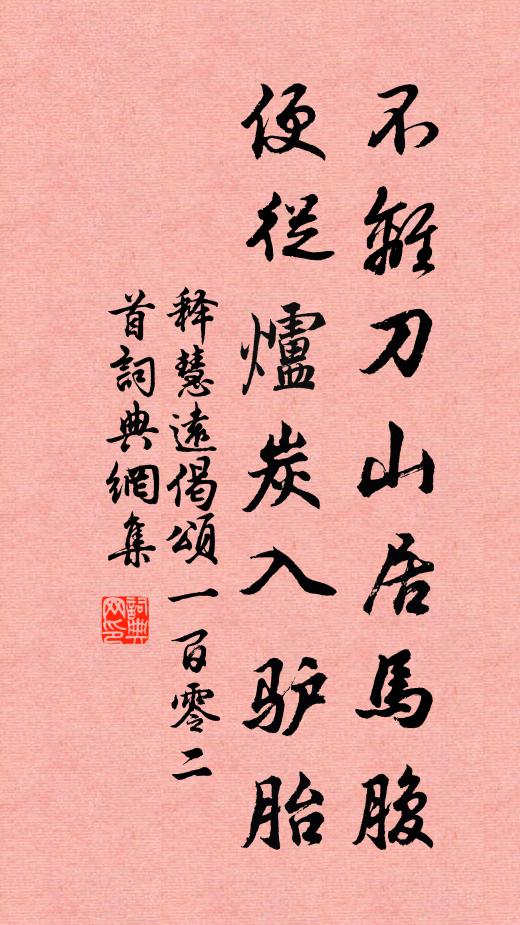 不離刀山居馬腹
便從爐炭入驴胎
释慧遠偈頌一百零二
首詞典網集
詞典网印